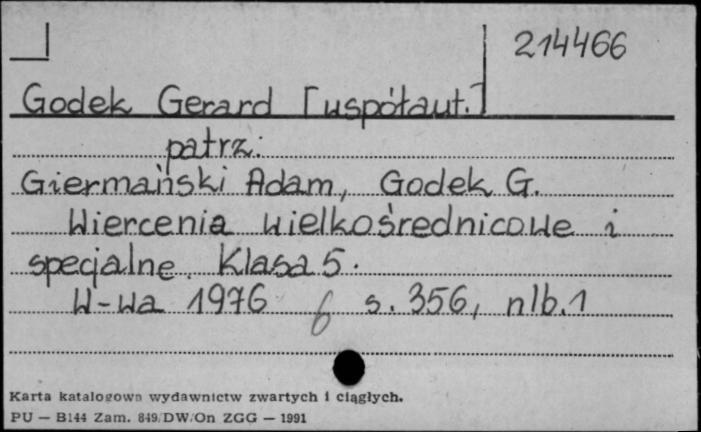 214466
Godek Gerard [współaut.]
patrz:
Giermański Adam, Godek G.
Wiercenia wielkośrednicowe i
specjalne. Klasa 5.
W-wa 1976 6 s. 356, nlb. 1
Karta katalogowa wydawnictw zwartych i ciągłych.
PU — B144 Zam. 849/DW/On ZGG — 1991